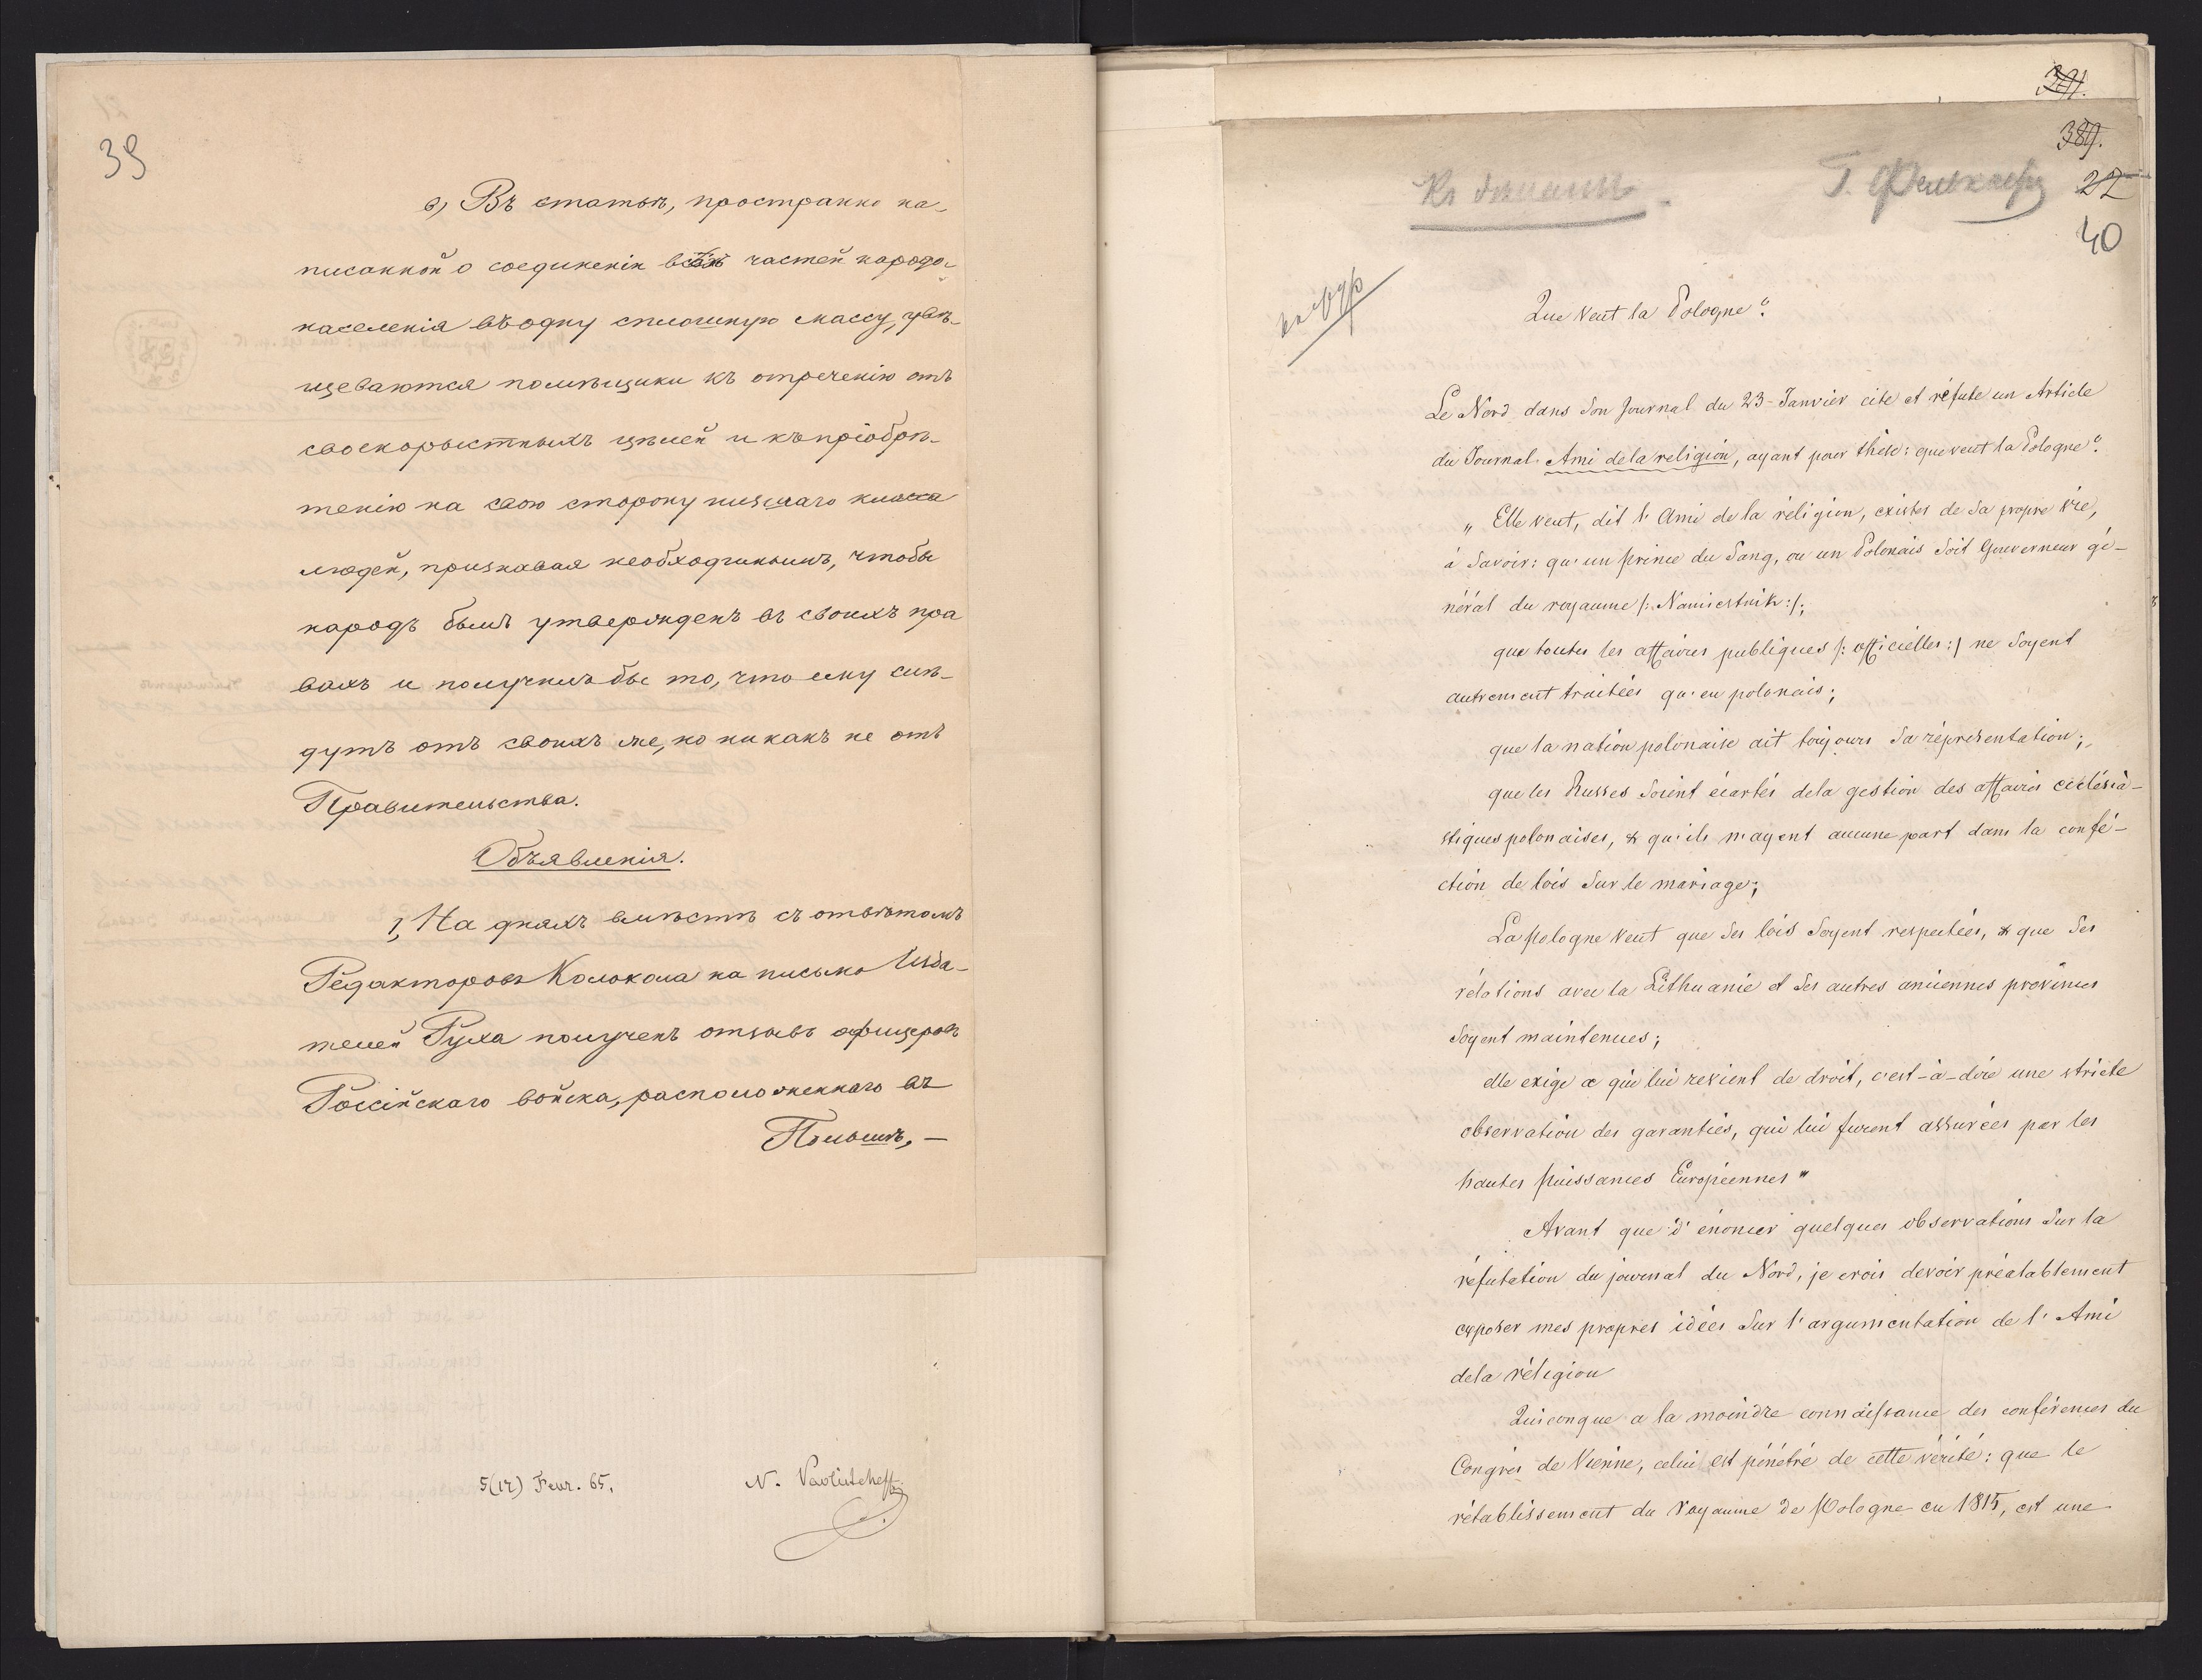 39
в) Въ статьѣ, пространно на-
писанной о соединеніи всѣхъ частей народо-
населенія въ одну сплошную массу, увѣ-
щеваются помѣщики къ отреченію отъ
своекорыстныхъ цѣлей и къ пріобрѣ-
тенію на свою сторону низшаго класса
людей, признавая необходимымъ, чтобы
народъ былъ утвержденъ въ своихъ пра
вахъ и получилъ бы то, что ему слѣ-
дутъ отъ своихъ же, но никакъ не отъ
Правительства.
Объявленія.
1, На дняхъ вмѣстѣ съ отвѣтомъ
Редакторовъ Колокола на письмо Изда-
телей Руха полученъ отзывъ офицеровъ
Россійскаго войска, расположеннаго въ
Польшѣ. —
5(17) Fevr. 65.
N. Pavlistcheff
391.
389.
22
40
Que veut la Pologne?
Le Nord dans son Journal du 23-Janvier cite et réfute un Article
du Journal Ami dela religion, ayant pour thèse: que veut la Pologne?
„ Elle veut, dit l'Ami de la réligion, exister de sa propre vie,
à savoir: qu'un prince du Sang, ou un Polonais soit Gouverneur gé-
néral du royaume /: Namiestnik :/;
que toutes les affaires publiques /: officielles :/ ne soyent
autrement traitées qu'en polonais;
que la nation polonaise ait toujours sa réprésentation;
que les Russes soient écartés dela gestion des affaires ecclésia-
stiques polonaises, & qu'ils n'ayent aucune part dans la confé-
ction de lois sur le mariage;
La pologne veut que ses lois soyent respectées, & que ses
rélations avec la Lithuanie et ses autres anciennes provinces
soyent maintenues;
elle exige ce qui lui revient de droit, c'est-à-dire une stricte
observation des garanties, qui lui furent assurées par les
hautes puissances Européennes"
Avant que d'énoncer quelques observations sur la
réfutation du journal du Nord, je crois devoir préalablement
exposer mes propres idées sur l'argumentation de l'Ami
dela réligion
Quiconque a la moindre connaissance des conférences du
Congrès de Vienne, celui est pénétré de cette vérité: que le
rétablissement du Royaume de Pologne en 1815, est une